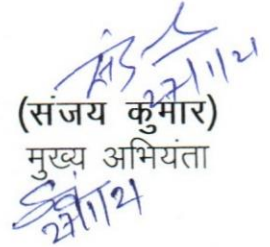 27/1/21
(संजय कुमार)
मुख्य अभियंता
27/1/21